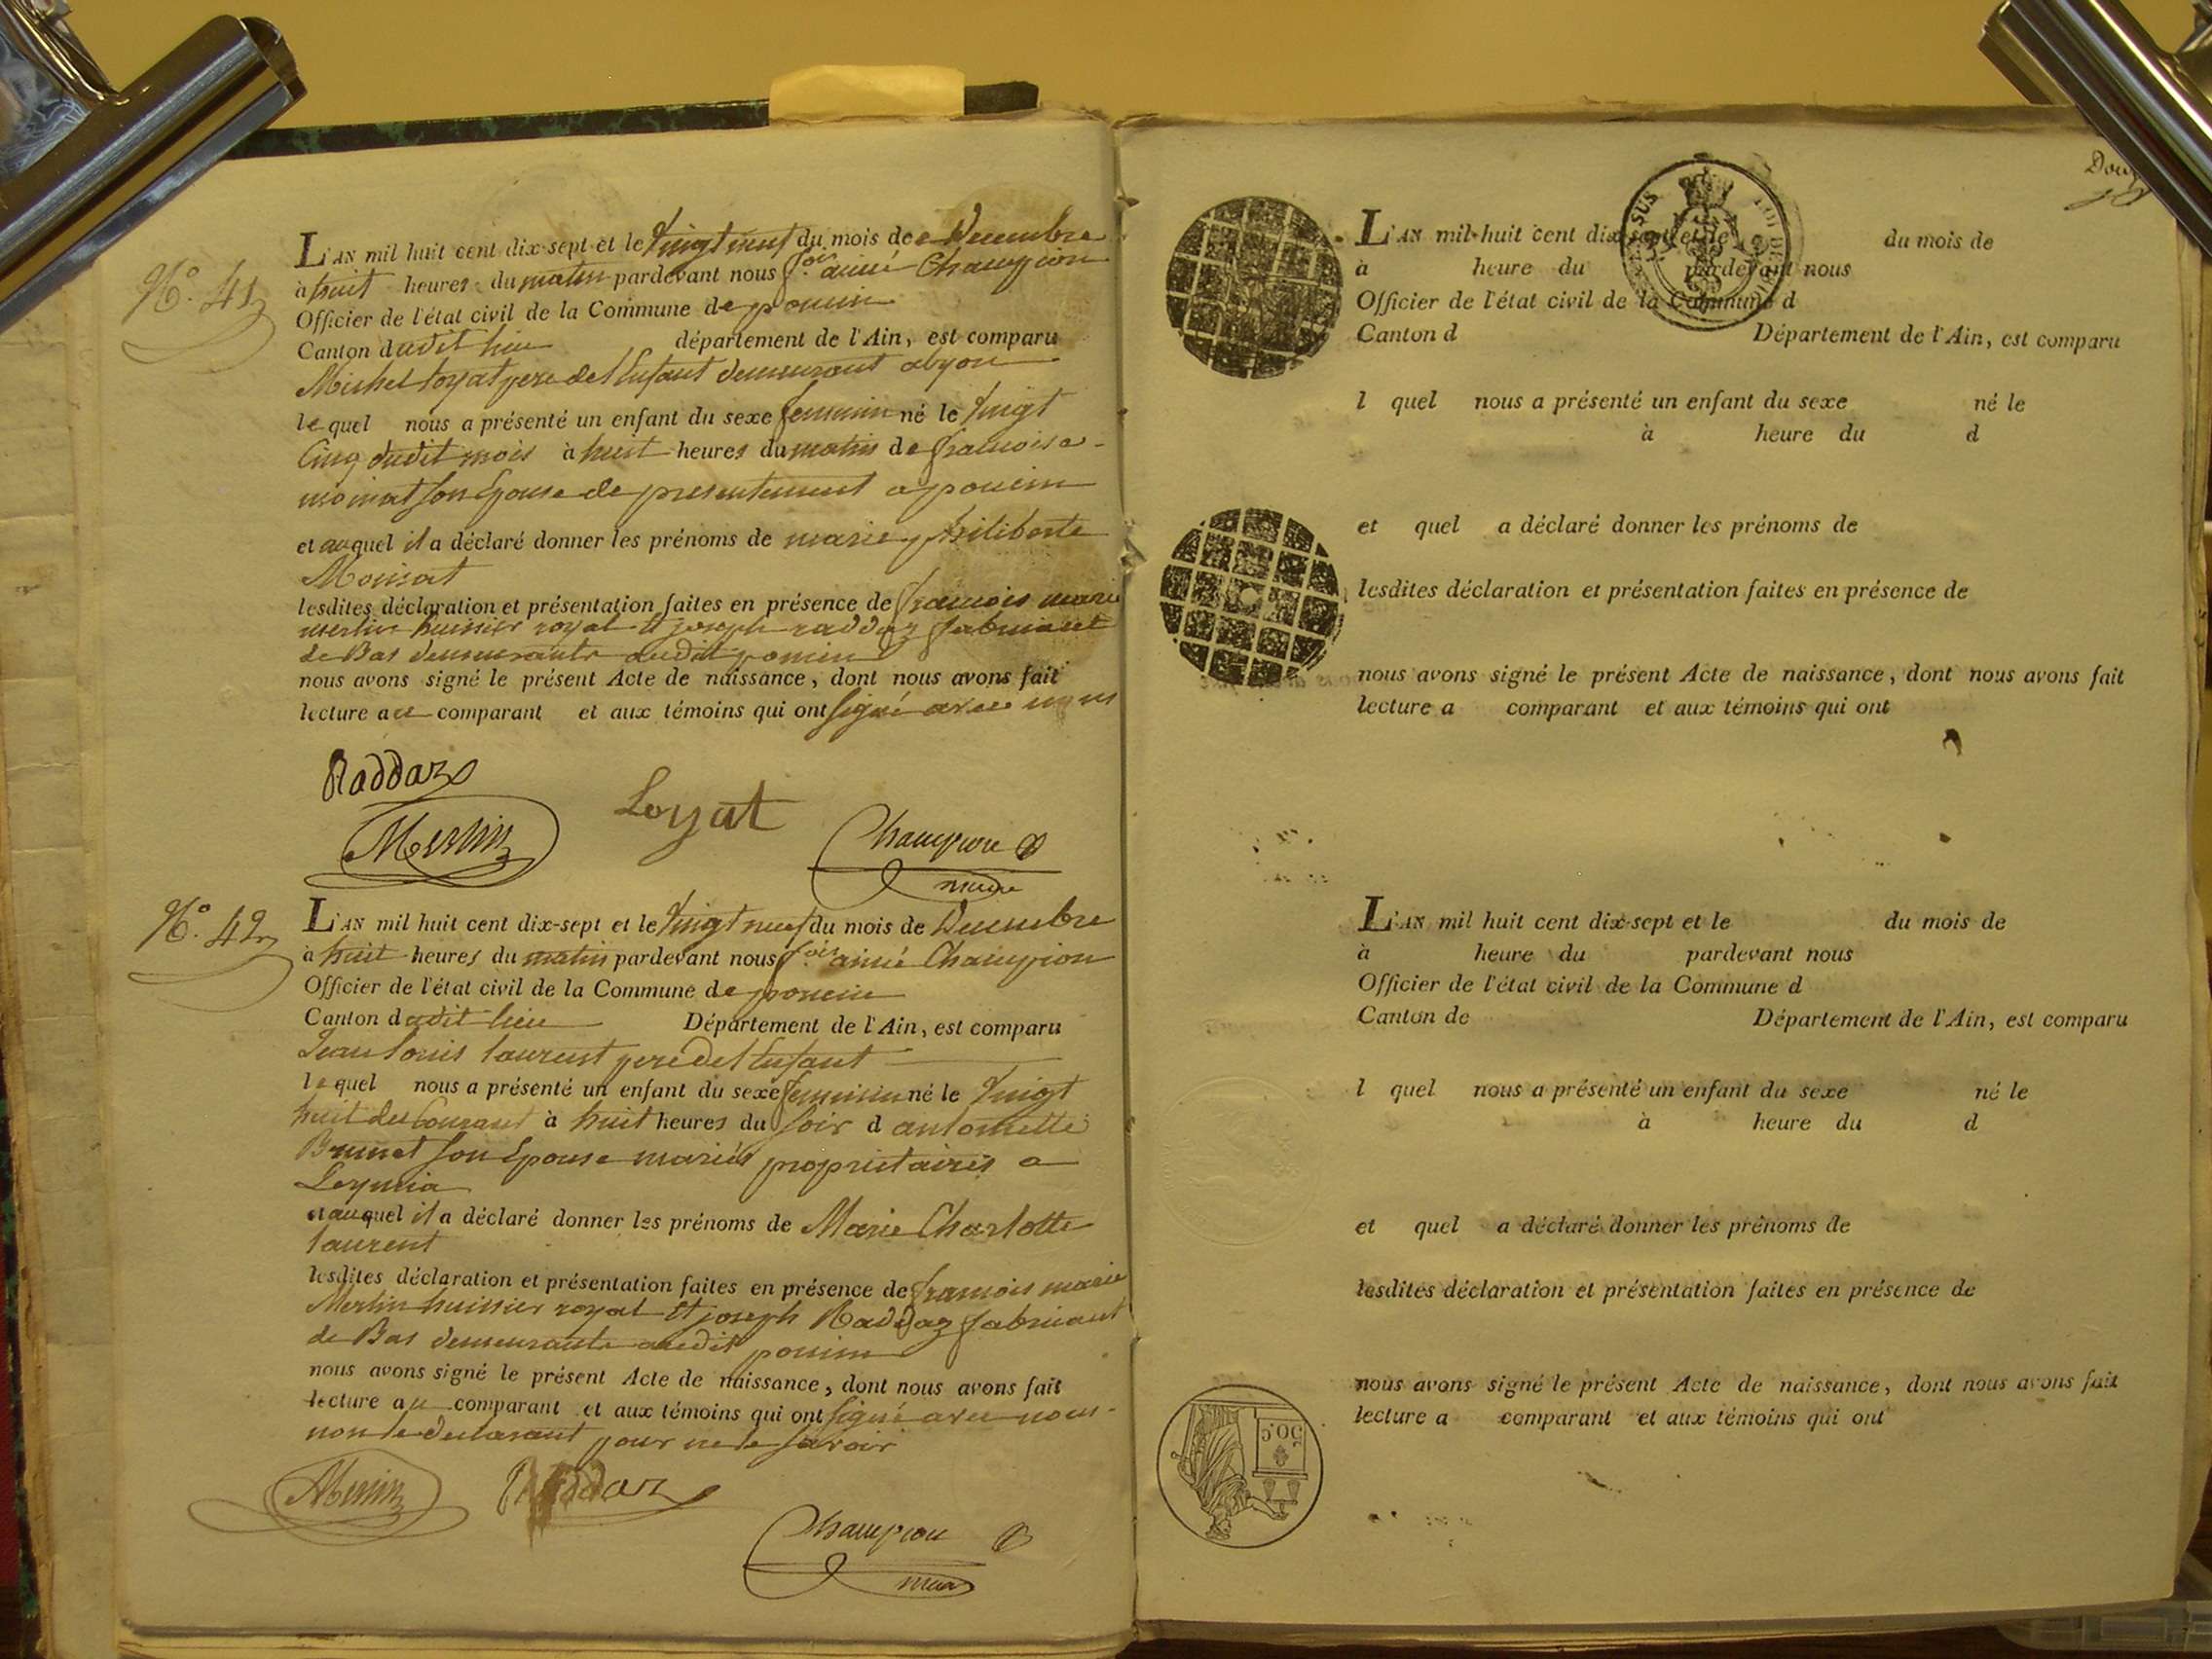 N.° 41
L'AN mil huit cent dix-sept et le vingt neuf du mois de Decembre
à huit heures du matin pardevant nous f.ois aimé Champion
Officier de l'état civil de la Commune de poncin
Canton dudit lieu département de l'Ain, est comparu
Michel loyat pere de l'Enfant demeurant alyon
lequel nous a présenté un enfant du sexe feminin né le vingt
Cinq dudit mois à huit heures du matin de francoise
moinat son Epouse de presentement a poncin
et auquel il a déclaré donner les prénoms de marie philiberte
lesdites déclaration et présentation faites en présence de francois marie
merlin huissier royal et joseph raddaz fabricant
de Bas demeurants audit poncin
nous avons signé le présent Acte de naissance, dont nous avons fait
lecture au comparant et aux témoins qui ont signé avec nous
Raddaz
Loyat
Merlin
Champion
maire
N.° 42
L'AN mil huit cent dix-sept et le vingt neuf du mois de Decembre
à huit heures du matin pardevant nous f.ois aimé Champion
Officier de l'état civil de la Commune de poncin
Canton dudit lieu Département de l'Ain, est comparu
Jean louis laurent pere de l'Enfant
lequel nous a présenté un enfant du sexe feminin né le vingt
huit du Courant à huit heures du soir d antoinette
Brunet son Epouse mariés proprietaires a
Leymia
et auquel il a déclaré donner les prénoms de Marie Charlotte
laurent
lesdites déclaration et présentation faites en présence de francois marie
Merlin huissier royal et joseph Raddaz fabricant
de Bas demeurants audit poncin
nous avons signé le présent Acte de naissance, dont nous avons fait
lecture au comparant et aux témoins qui ont signé avec nous
non le declarant pour ne le savoir
Merlin
Raddaz
Champion
maire
L'AN mil huit cent dix-sept et le du mois de
à heure du pardevant nous
Officier de l'état civil de la Commune d
Canton d Département de l'Ain, est comparu
l quel nous a présenté un enfant du sexe né le
à heure du d
et quel a déclaré donner les prénoms de
lesdites déclaration et présentation faites en présence de
nous avons signé le présent Acte de naissance, dont nous avons fait
lecture a comparant et aux témoins qui ont
L'AN mil huit cent dix-sept et le du mois de
à heure du pardevant nous
Officier de l'état civil de la Commune d
Canton de Département de l'Ain, est comparu
l quel nous a présenté un enfant du sexe né le
à heure du d
et quel a déclaré donner les prénoms de
lesdites déclaration et présentation faites en présence de
nous avons signé le présent Acte de naissance, dont nous avons fait
lecture a comparant et aux témoins qui ont
50c